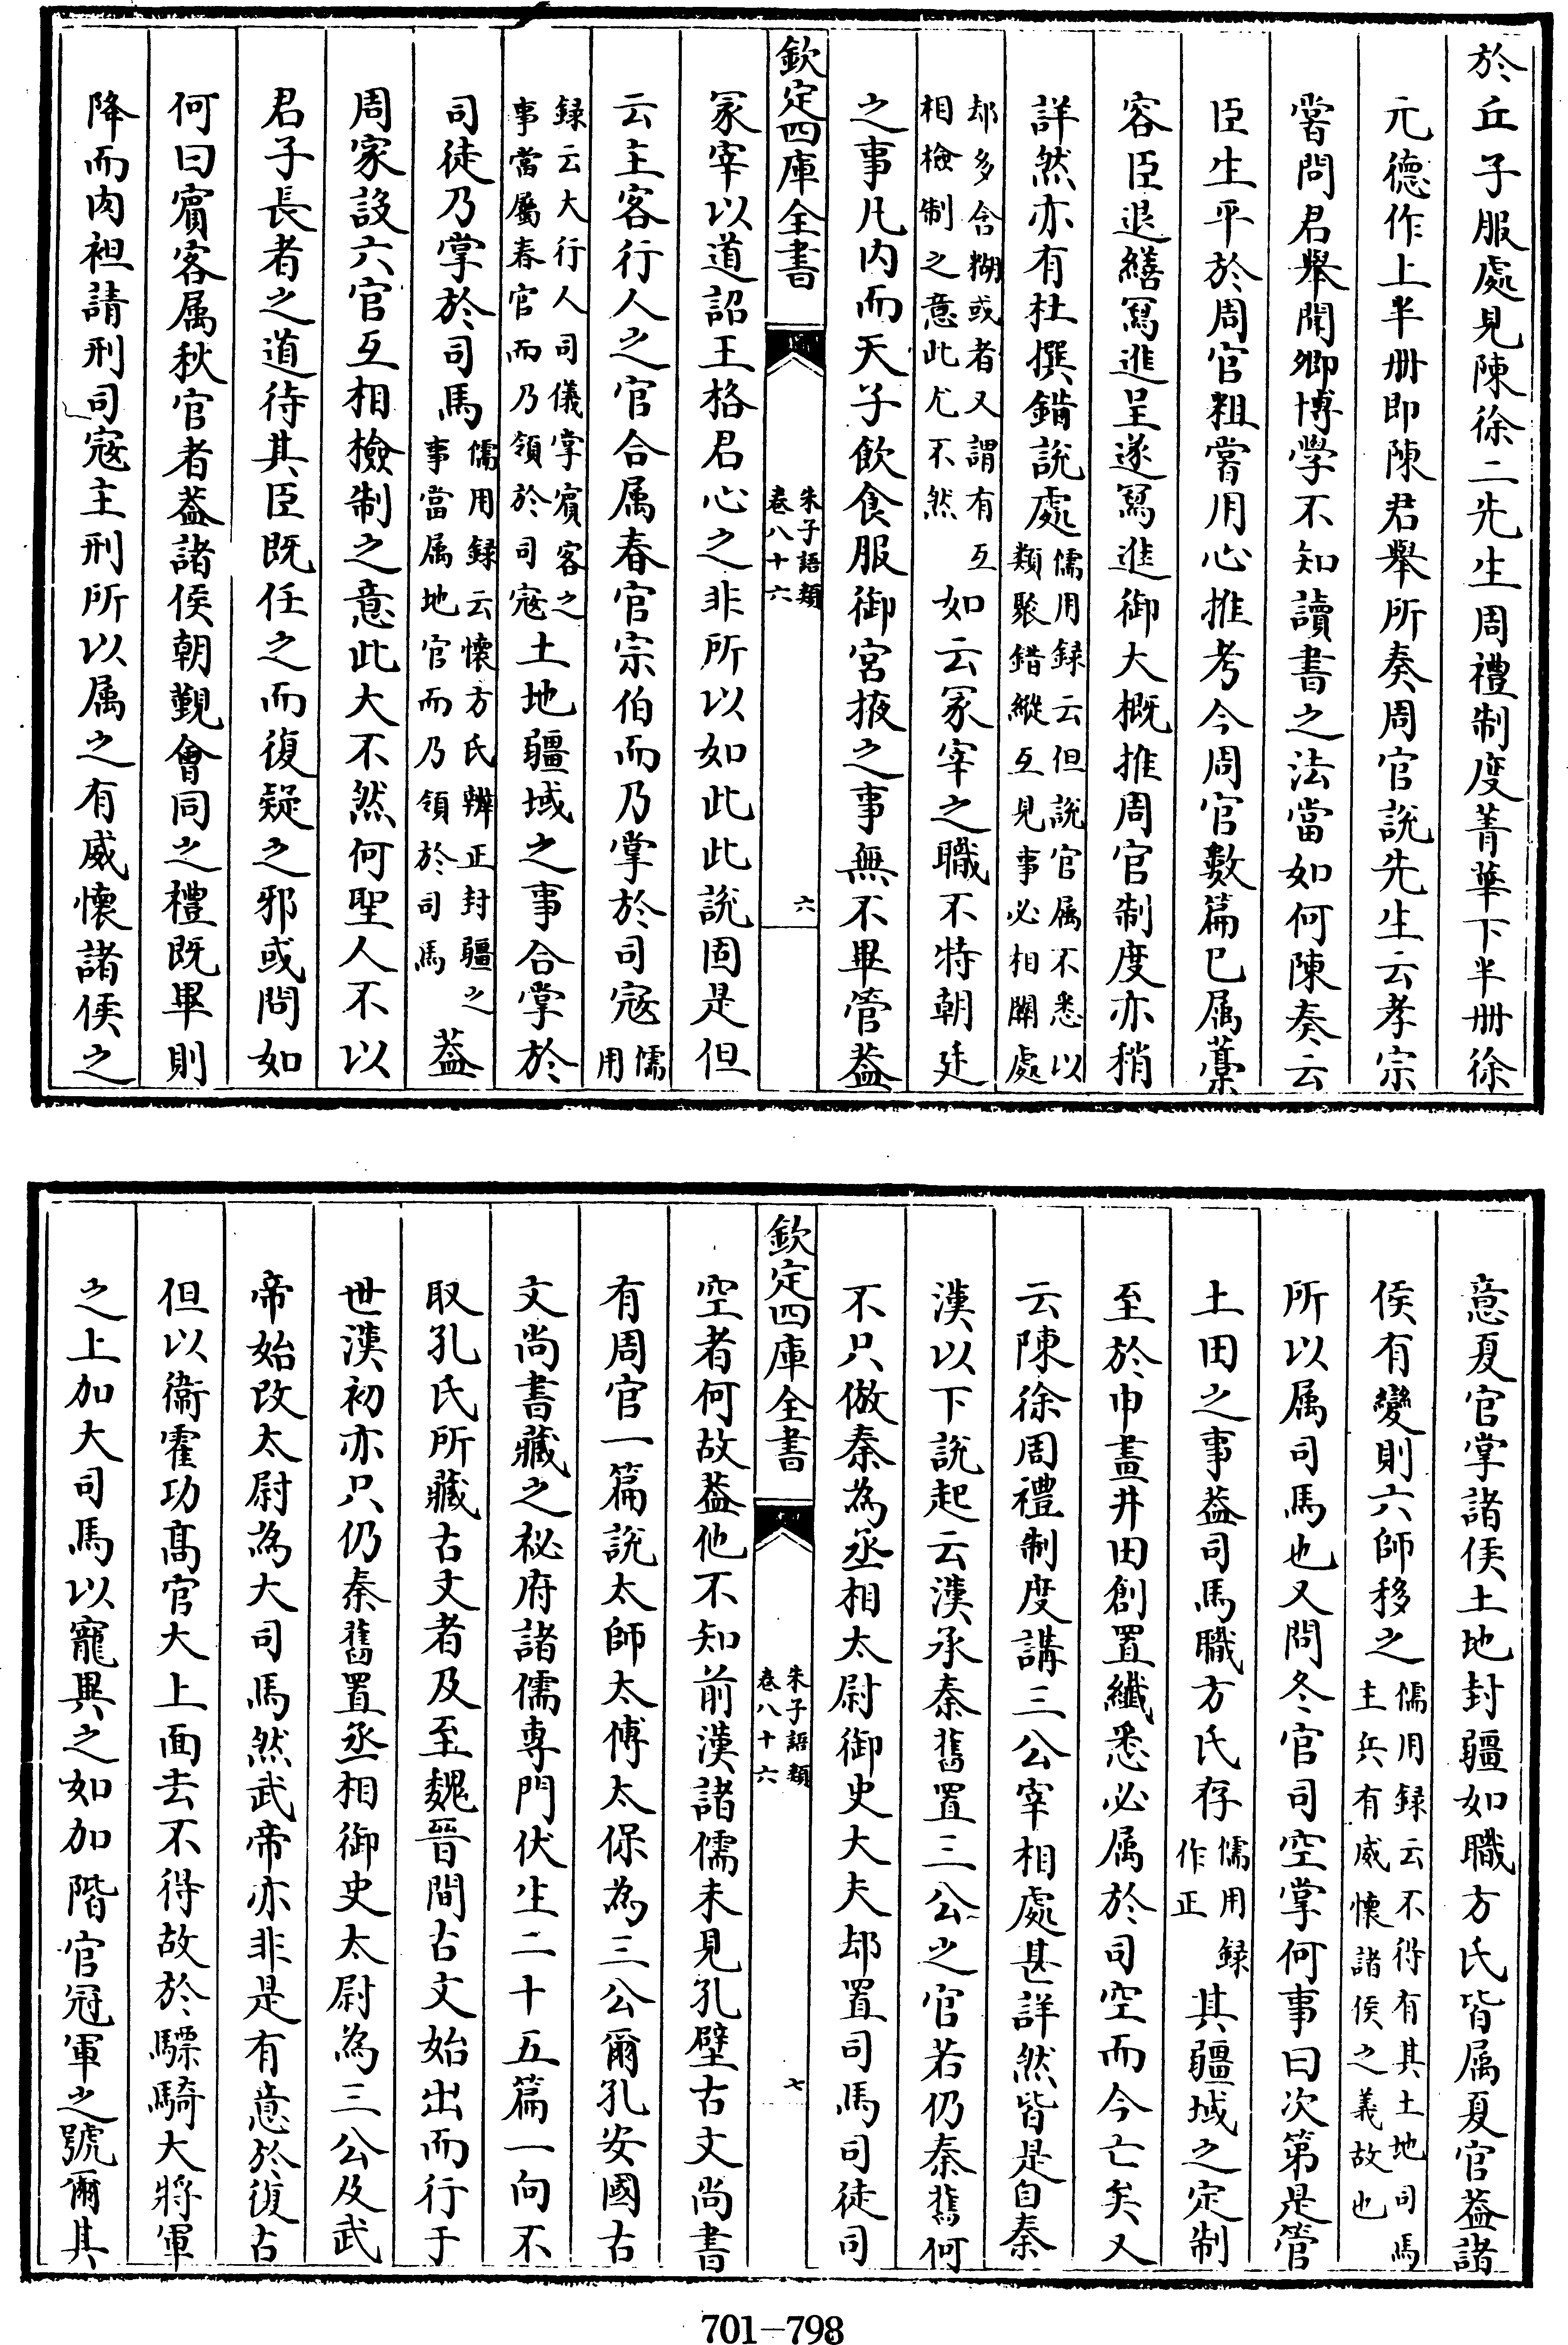 於丘子服處見陳徐二先生周禮制度菁華下半册徐
元德作上半册即陳君舉所奏周官說先生云孝宗
嘗問君舉聞卿博學不知讀書之法當如何陳奏云
臣生平於周官粗嘗用心推考今周官數篇已属藁
容臣退繕寫進呈遂寫進御大概推周官制度亦稍
詳然亦有杜撰錯說處儒用録云但說官属不悉以類聚錯縱互見事必相關處
却多含糊或者又謂有互相檢制之意此尤不然如云冡宰之職不特朝廷
之事凡内而天子飲食服御宮掖之事無不畢管葢
欽定四庫全書 朱子語類 卷八十六 六
冡宰以道詔王格君心之非所以如此此說固是但
云主客行人之官合属春官宗伯而乃掌於司寇儒用
録云大行人司儀掌賓客之事當屬春官而乃領於司寇土地疆域之事合掌於
司徒乃掌於司馬儒用録云懷方氏辨正封疆之事當属地官而乃領於司馬葢
周家設六官互相檢制之意此大不然何聖人不以
君子長者之道待其臣既任之而復疑之邪或問如
何曰賓客属秋官者葢諸侯朝覲會同之禮既畢則
降而肉袒請刑司寇主刑所以属之有威懷諸侯之
意夏官掌諸侯土地封疆如職方氏皆属夏官葢諸
侯有變則六師移之儒用録云不得有其土地司馬主兵有威懷諸侯之義故也
所以属司馬也又問冬官司空掌何事曰次第是管
土田之事葢司馬職方氏存儒用録作正其疆域之定制
至於申畫井田創置纖悉必属於司空而今亡矣又
云陳徐周禮制度講三公宰相處甚詳然皆是自秦
漢以下說起云漢承秦舊置三公之官若仍秦舊何
不只倣秦為丞相太尉御史大夫却置司馬司徒司
欽定四庫全書 朱子語類 卷八十六 七
空者何故葢他不知前漢諸儒未見孔壁古文尚書
有周官一篇說太師太傅太保為三公爾孔安國古
文尚書藏之祕府諸儒専門伏生二十五篇一向不
取孔氏所藏古文者及至魏晉間古文始出而行于
世漢初亦只仍秦舊置丞相御史太尉為三公及武
帝始改太尉為大司馬然武帝亦非是有意於復古
但以衞霍功髙官大上面去不得故於驃騎大將軍
之上加大司馬以寵異之如加階官冠軍之號爾其
701—798